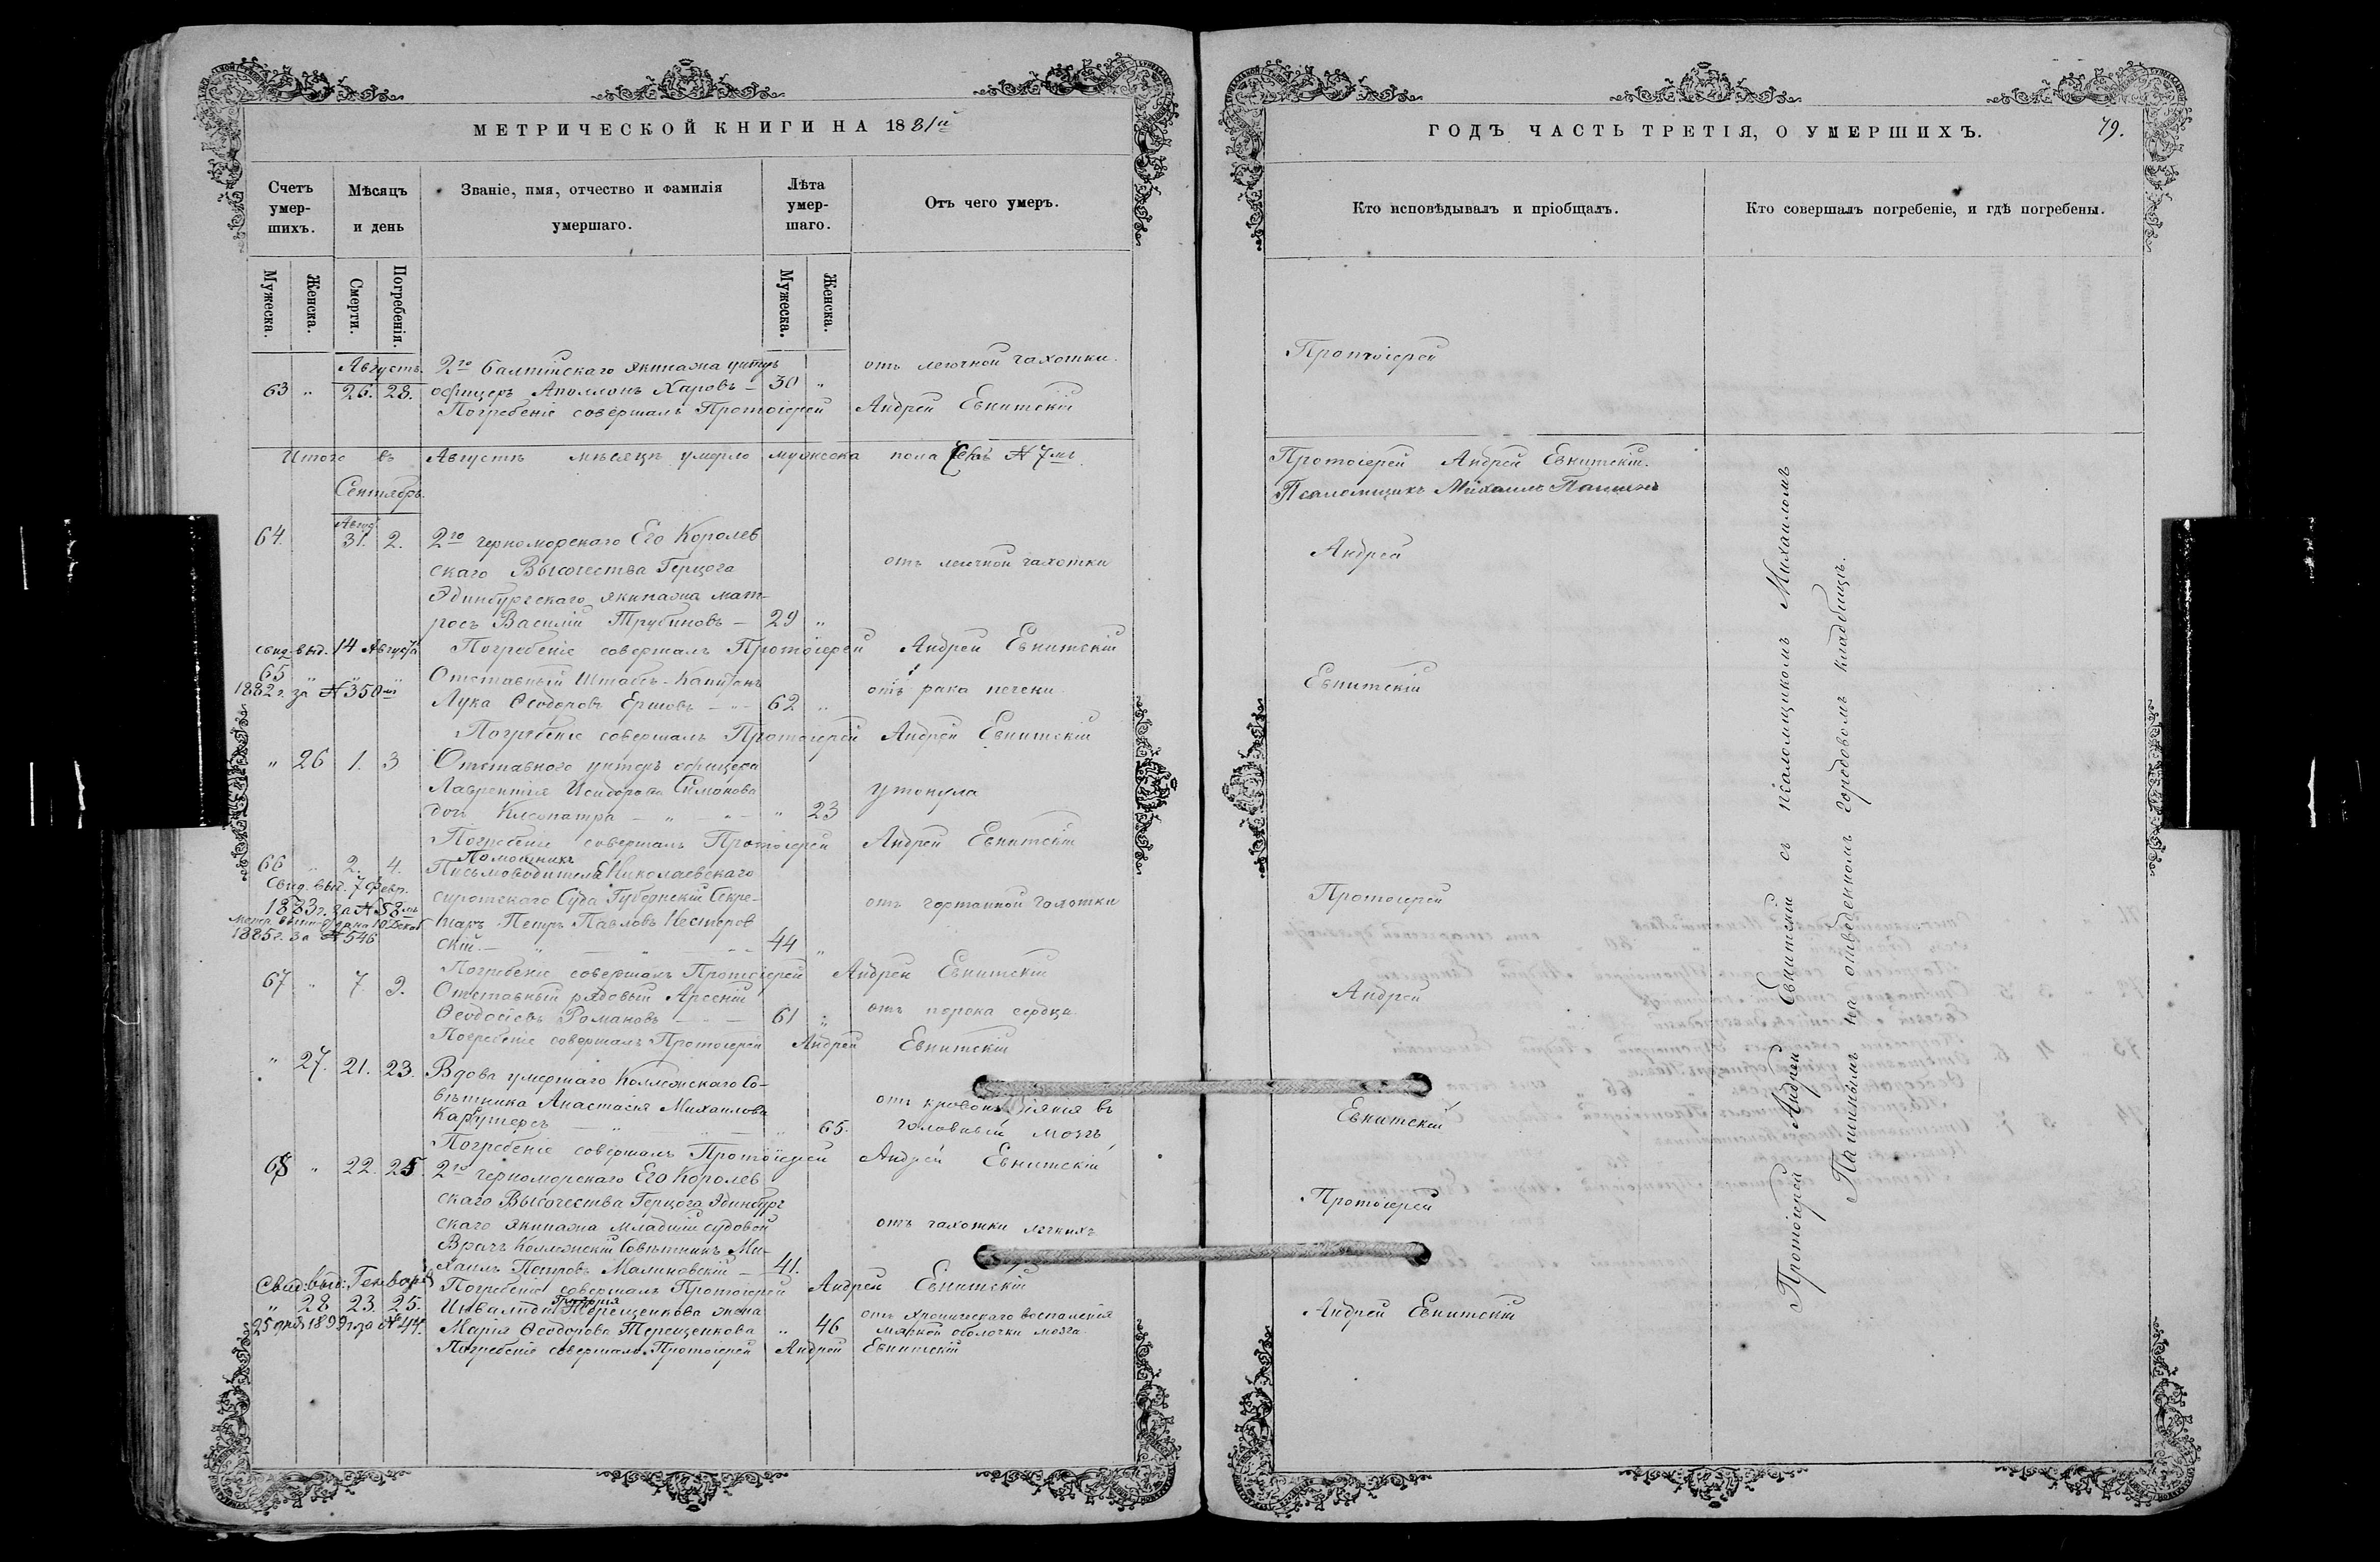 МЕТРИЧЕСКОЙ КНИГИ НА 1881й
Счетъ умер-шихъ.
Мѣсяцъ и день
Званіе, имя, отчество и фамилія умершаго.
Лѣта умер-шаго.
Отъ чего умеръ.
Мужеска.
Женска.
Смерти.
Погребенія.
Мужеска.
Женска.
Августъ. 2го Балтійскаго экипажа унтеръ отъ легочной чахотки.
63 " 26. 28. офицеръ Аполлонъ Харовъ — 30 "
Погребеніе совершалъ Протоіерей Андрей Евнитскій
Итого въ Августѣ мѣсяцѣ умерло мужеска пола № 7мь
Сентябрь.
Авгус
64. 31. 2. 2го черноморскаго Его Королев
скаго Высочества Герцога отъ легочной чахотки
Эдинбургскаго экипажа мат-
росъ Василій Трубиновъ — 29 "
Погребеніе совершалъ Протоіерей Андрей Евнитскій
свид. выд. 14 Августа
65 " " " Отставный Штабсъ-Капитанъ отъ рака печени
1882 г. за № 350м
Лука Ѳеодоровъ Ершовъ — 62 "
Погребеніе совершалъ Протоіерей Андрей Евнитскій
" 26 1. 3 Отставного унтеръ офицера
Лаврентія Исидорова Симонова утонула
дочь Клеопатра — " — " 23
Погребеніе совершалъ Протоіерей Андрей Евнитскій
Помощникъ
66 " 2. 4. Письмоводителя Николаевскаго
Свид. выд. 7 Февр.
сиротскаго Суда Губернскій Секре- отъ гортанной чахотки
1883 г. за № 58мъ
таръ Петръ Павловъ Нестеров
1885 г. за № 546
скій. — 44 "
Погребеніе совершалъ Протоіерей Андрей Евнитскій
67 " 7. 9. Отставный рядовый Арсеній
Ѳеодосіевъ Романовъ — 61 " отъ порока сердца
Погребеніе совершалъ Протоіерей Андрей Евнитскій
" 27. 21. 23. Вдова умершаго Коллежскаго Со-
вѣтника Анастасія Михаилова отъ кровоизліянія въ
65. головный мозгъ
Погребеніе совершалъ Протоіерей Андрей Евнитскій
68 " 22. 25. 2го черноморскаго Его Королев
скаго Высочества Герцога Эдинбург
скаго экипажа младшій судовой отъ чахотки легкихъ
Врачъ Коллежскій Совѣтникъ Ми-
хаилъ Петровъ Малиновскій — 41.
Свид: выд: Генваря
Погребеніе совершалъ Протоіерей Андрей Евнитскій
" 28 23. 25. Инвалида Терещенкова жена отъ хроническаго воспаленія
25 дня 1892 г. за № 44.
Марія Ѳеодорова Терещенкова " 46 мягкой оболочки мозга
Погребеніе совершалъ Протоіерей Андрей Евнитскій
ГОДЪ ЧАСТЬ ТРЕТІЯ, О УМЕРШИХЪ.
79.
Кто исповѣдывалъ и пріобщалъ.
Кто совершалъ погребеніе, и гдѣ погребены.
Протоіерей
Протоіерей Андрей Евнитскій.
Псаломщикъ Михаилъ Пашинъ
Андрей
Евнитскій
Протоіерей
Андрей
Евнитскій
Протоіерей
Андрей Евнитскій
Протоіерей Андрей Евнитскій съ псаломщикомъ Михаиломъ
Пашинымъ на отведенномъ городовомъ кладбищѣ.